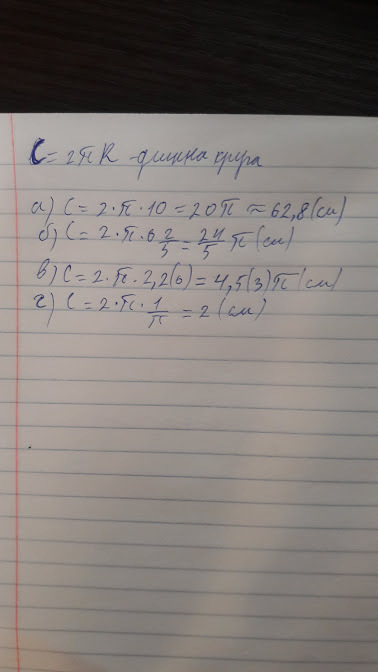 C = 2πR - длинна круга
а) C = 2·π·10 = 20π ≈ 62,8 (см)
б) C = 2·π·6 2/5 = 24/5 π (см)
в) C = 2·π·2,2(6) = 4,5(3)π (см)
г) C = 2·π·1/π = 2 (см)